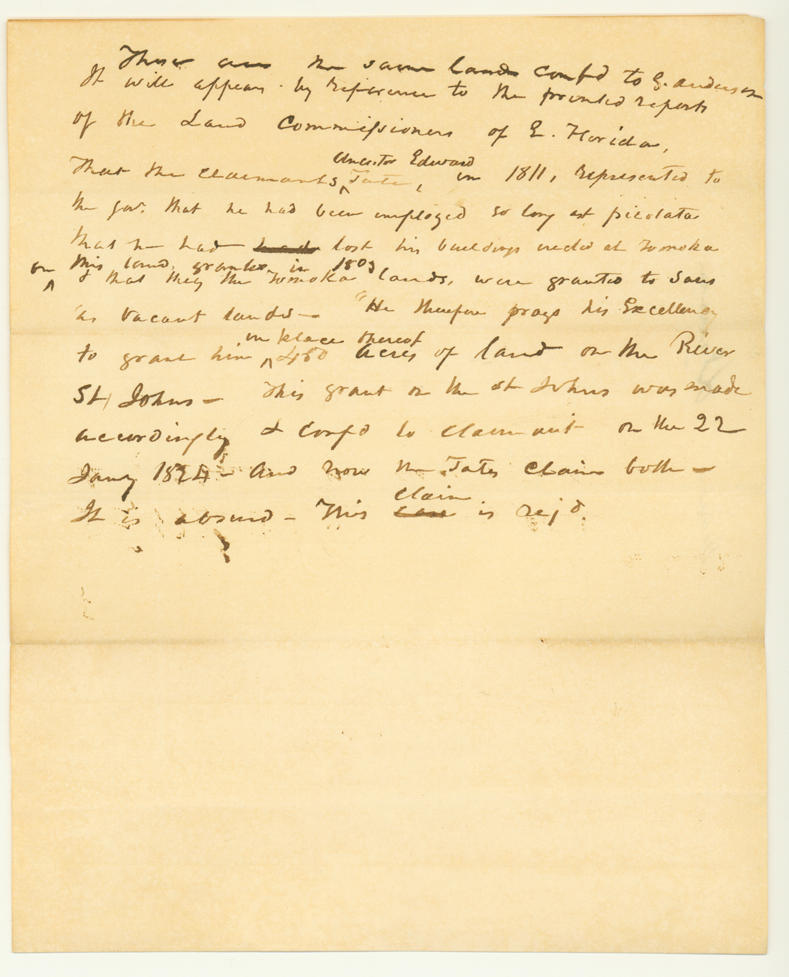 These are the same lands conf'd to G. Anderson
It will appear by reference to the printed reports
of the Land Commissioners of E. Florida,
That the Claimants Ancestor Edward Tate, in 1811, represented to
the gov. that he had been employed so long at picolata
that he had lost his buildings at Tomoka
on this land, granted in 1803
& that they the Tomoka lands, were granted to
as vacant lands— "He therefore prays his Excellency
to grant him in place thereof 450 acres of land on the River
St Johns— This grant on the St Johns was made
accordingly & conf'd to claimant on the 22
Jany 1824— And now the Tates claim both—
It is absurd— This claim is rej'd.